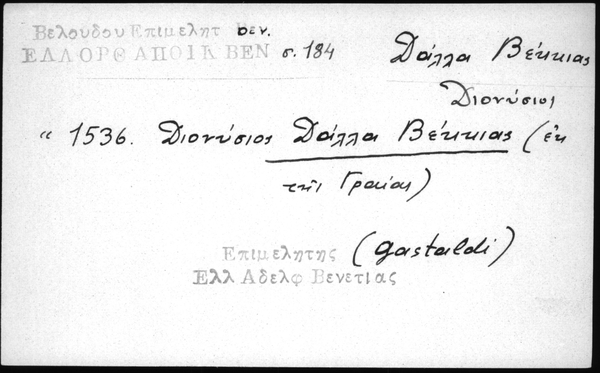 Βελούδου Επιμελητ Βεν.
ΕΛΛΟΡΘ ΑΠΟΙΚ ΒΕΝ σ. 184
Δάλλα Βέκκιας
Διονύσιος
“ 1536. Διονύσιος Δάλλα Βέκκιας (ἐκ
τῆς Γραίας)
Επιμελητης (gastaldi)
Ελλ Αδελφ Βενετιας